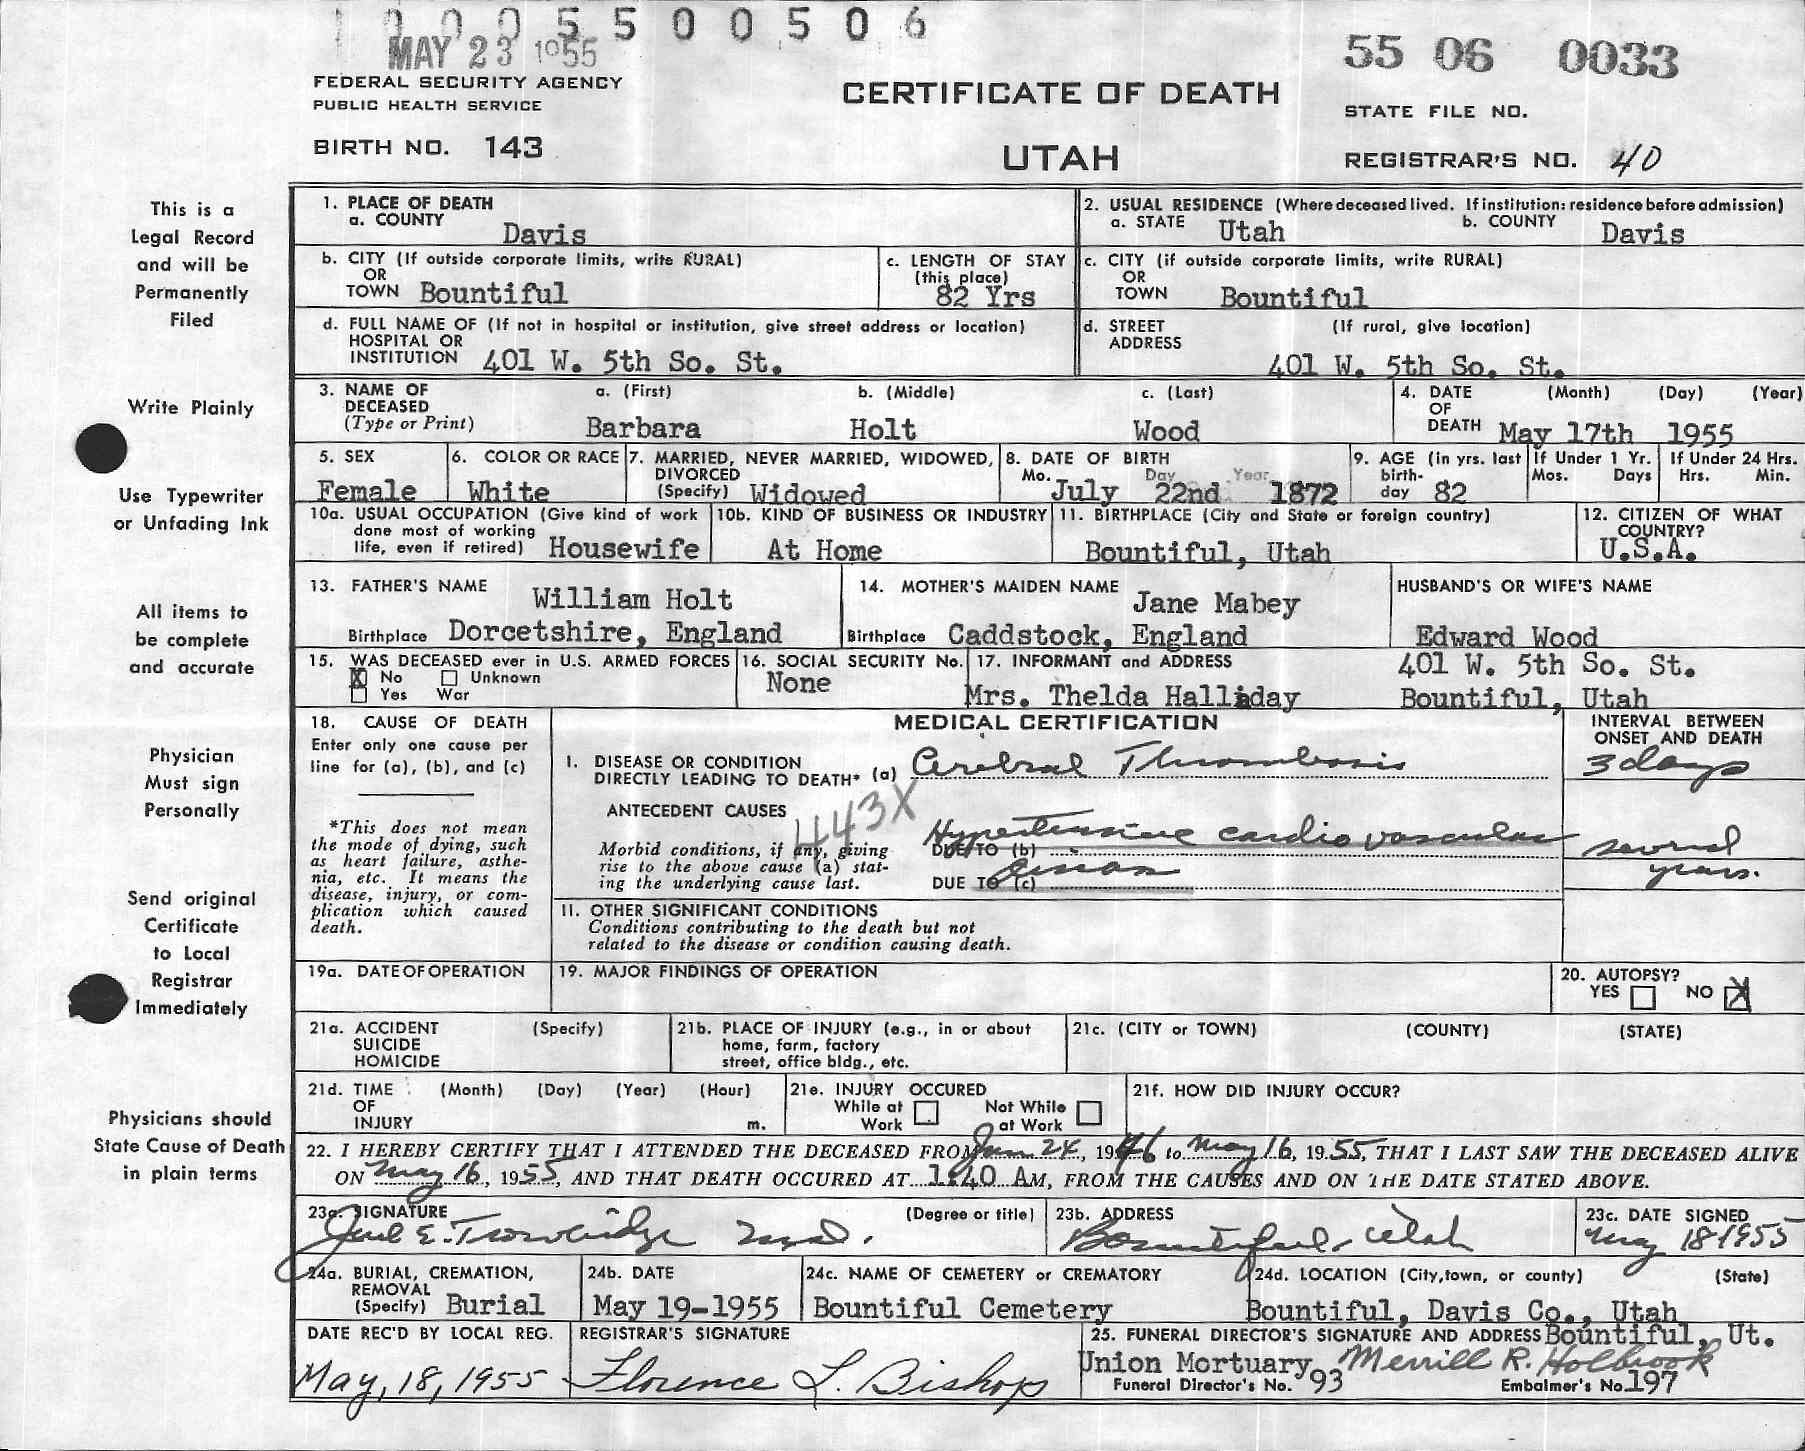 1 0 0 0 5 5 0 0 5 0 6
MAY 23 1955
55 06 0033
FEDERAL SECURITY AGENCY
PUBLIC HEALTH SERVICE
CERTIFICATE OF DEATH
STATE FILE NO.
BIRTH NO. 143
UTAH
REGISTRAR'S NO. 40
This is a
Legal Record
and will be
Permanently
Filed
Write Plainly
Use Typewriter
or Unfading Ink
All items to
be complete
and accurate
Physician
Must sign
Personally
Send original
Certificate
to Local
Registrar
Immediately
Physicians should
State Cause of Death
in plain terms
1. PLACE OF DEATH
a. COUNTY Davis
2. USUAL RESIDENCE (Where deceased lived. If institution: residence before admission)
a. STATE Utah b. COUNTY Davis
b. CITY (If outside corporate limits, write RURAL)
OR
TOWN Bountiful
c. LENGTH OF STAY
(this place)
82 Yrs
c. CITY (if outside corporate limits, write RURAL)
OR
TOWN Bountiful
d. FULL NAME OF (If not in hospital or institution, give street address or location)
HOSPITAL OR
INSTITUTION 401 W. 5th So. St.
d. STREET (If rural, give location)
ADDRESS
401 W. 5th So. St.
3. NAME OF a. (First) b. (Middle) c. (Last)
DECEASED
(Type or Print) Barbara Holt Wood
4. DATE (Month) (Day) (Year)
OF
DEATH May 17th 1955
5. SEX
Female
6. COLOR OR RACE
White
7. MARRIED, NEVER MARRIED, WIDOWED,
DIVORCED
(Specify) Widowed
8. DATE OF BIRTH
Mo. Day Year
July 22nd 1872
9. AGE (in yrs. last
birth-
day 82
If Under 1 Yr.
Mos. Days
If Under 24 Hrs.
Hrs. Min.
10a. USUAL OCCUPATION (Give kind of work
done most of working
life, even if retired) Housewife
10b. KIND OF BUSINESS OR INDUSTRY
At Home
11. BIRTHPLACE (City and State or foreign country)
Bountiful, Utah
12. CITIZEN OF WHAT
COUNTRY?
U.S.A.
13. FATHER'S NAME William Holt
Birthplace Dorcetshire, England
14. MOTHER'S MAIDEN NAME Jane Mabey
Birthplace Caddstock, England
HUSBAND'S OR WIFE'S NAME
Edward Wood
15. WAS DECEASED ever in U.S. ARMED FORCES
X No Unknown
Yes War
16. SOCIAL SECURITY No.
None
17. INFORMANT and ADDRESS 401 W. 5th So. St.
Mrs. Thelda Halliday Bountiful, Utah
18. CAUSE OF DEATH
Enter only one cause per
line for (a), (b), and (c)
*This does not mean
the mode of dying, such
as heart failure, asthe-
nia, etc. It means the
disease, injury, or com-
plication which caused
death.
MEDICAL CERTIFICATION
INTERVAL BETWEEN
ONSET AND DEATH
I. DISEASE OR CONDITION
DIRECTLY LEADING TO DEATH* (a) Cerebral Thrombosis 3 days
ANTECEDENT CAUSES 443X
Morbid conditions, if any, giving
rise to the above cause (a) stat-
ing the underlying cause last.
DUE TO (b) Hypertensive cardio vascular several
DUE TO (c) years.
11. OTHER SIGNIFICANT CONDITIONS
Conditions contributing to the death but not
related to the disease or condition causing death.
19a. DATE OF OPERATION
19. MAJOR FINDINGS OF OPERATION
20. AUTOPSY?
YES NO X
21a. ACCIDENT (Specify)
SUICIDE
HOMICIDE
21b. PLACE OF INJURY (e.g., in or about
home, farm, factory
street, office bldg., etc.
21c. (CITY or TOWN) (COUNTY) (STATE)
21d. TIME (Month) (Day) (Year) (Hour)
OF
INJURY m.
21e. INJURY OCCURED
While at Not While
Work at Work
21f. HOW DID INJURY OCCUR?
22. I HEREBY CERTIFY THAT I ATTENDED THE DECEASED FROM Jan 24, 1946 to May 16, 1955, THAT I LAST SAW THE DECEASED ALIVE
ON May 16, 1955, AND THAT DEATH OCCURED AT 1:40 AM, FROM THE CAUSES AND ON THE DATE STATED ABOVE.
23a. SIGNATURE (Degree or title)
E. Trowbridge M.D.
23b. ADDRESS
Bountiful, Utah
23c. DATE SIGNED
May 18-1955
24a. BURIAL, CREMATION,
REMOVAL
(Specify) Burial
24b. DATE
May 19-1955
24c. NAME OF CEMETERY or CREMATORY
Bountiful Cemetery
24d. LOCATION (City, town, or county) (State)
Bountiful, Davis Co., Utah
DATE REC'D BY LOCAL REG.
May, 18, 1955
REGISTRAR'S SIGNATURE
Florence L. Bishop
25. FUNERAL DIRECTOR'S SIGNATURE AND ADDRESS Bountiful, Ut.
Union Mortuary, Merrill R. Holbrook
Funeral Director's No. 93 Embalmer's No. 197